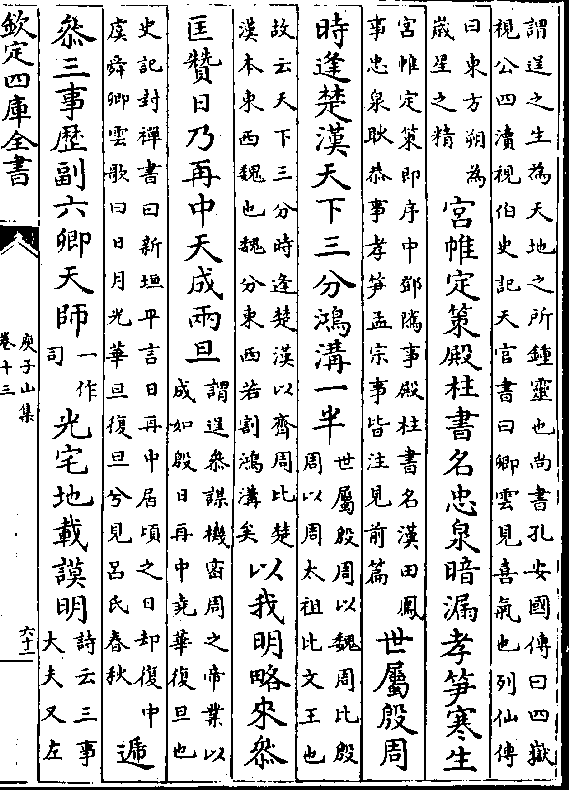 謂逞之生為天地之所鍾靈也尚書孔安國傳曰四嶽
視公四瀆視伯史記天官書曰卿雲見喜氣也列仙傳
曰東方朔為
歲星之精
宮帷定策殿柱書名忠泉暗漏孝笋寒生
宮帷定策即序中鄧隲事殿柱書名漢田鳳
事忠泉耿恭事孝笋孟宗事皆注見前篇
世屬殷周
時逢楚漢天下三分鴻溝一半
世屬殷周以魏周比殷
周以周太祖比文王也
故云天下三分時逢楚漢以齊周比楚
漢本東西魏也魏分東西若割鴻溝矣
以我明略來叅
匡贊日乃再中天成兩旦
謂逞叅謀機密周之帝業以
成如殷日再中堯華復旦也
史記封禪書曰新垣平言日再中居頃之日却復中
虞舜卿雲歌曰日月光華旦復旦兮見呂氏春秋
遞
叅三事歷副六卿天師
一作
司
光宅地載謨明
詩云三事
大夫又左
欽定四庫全書
庾子山集
卷十三
六十一